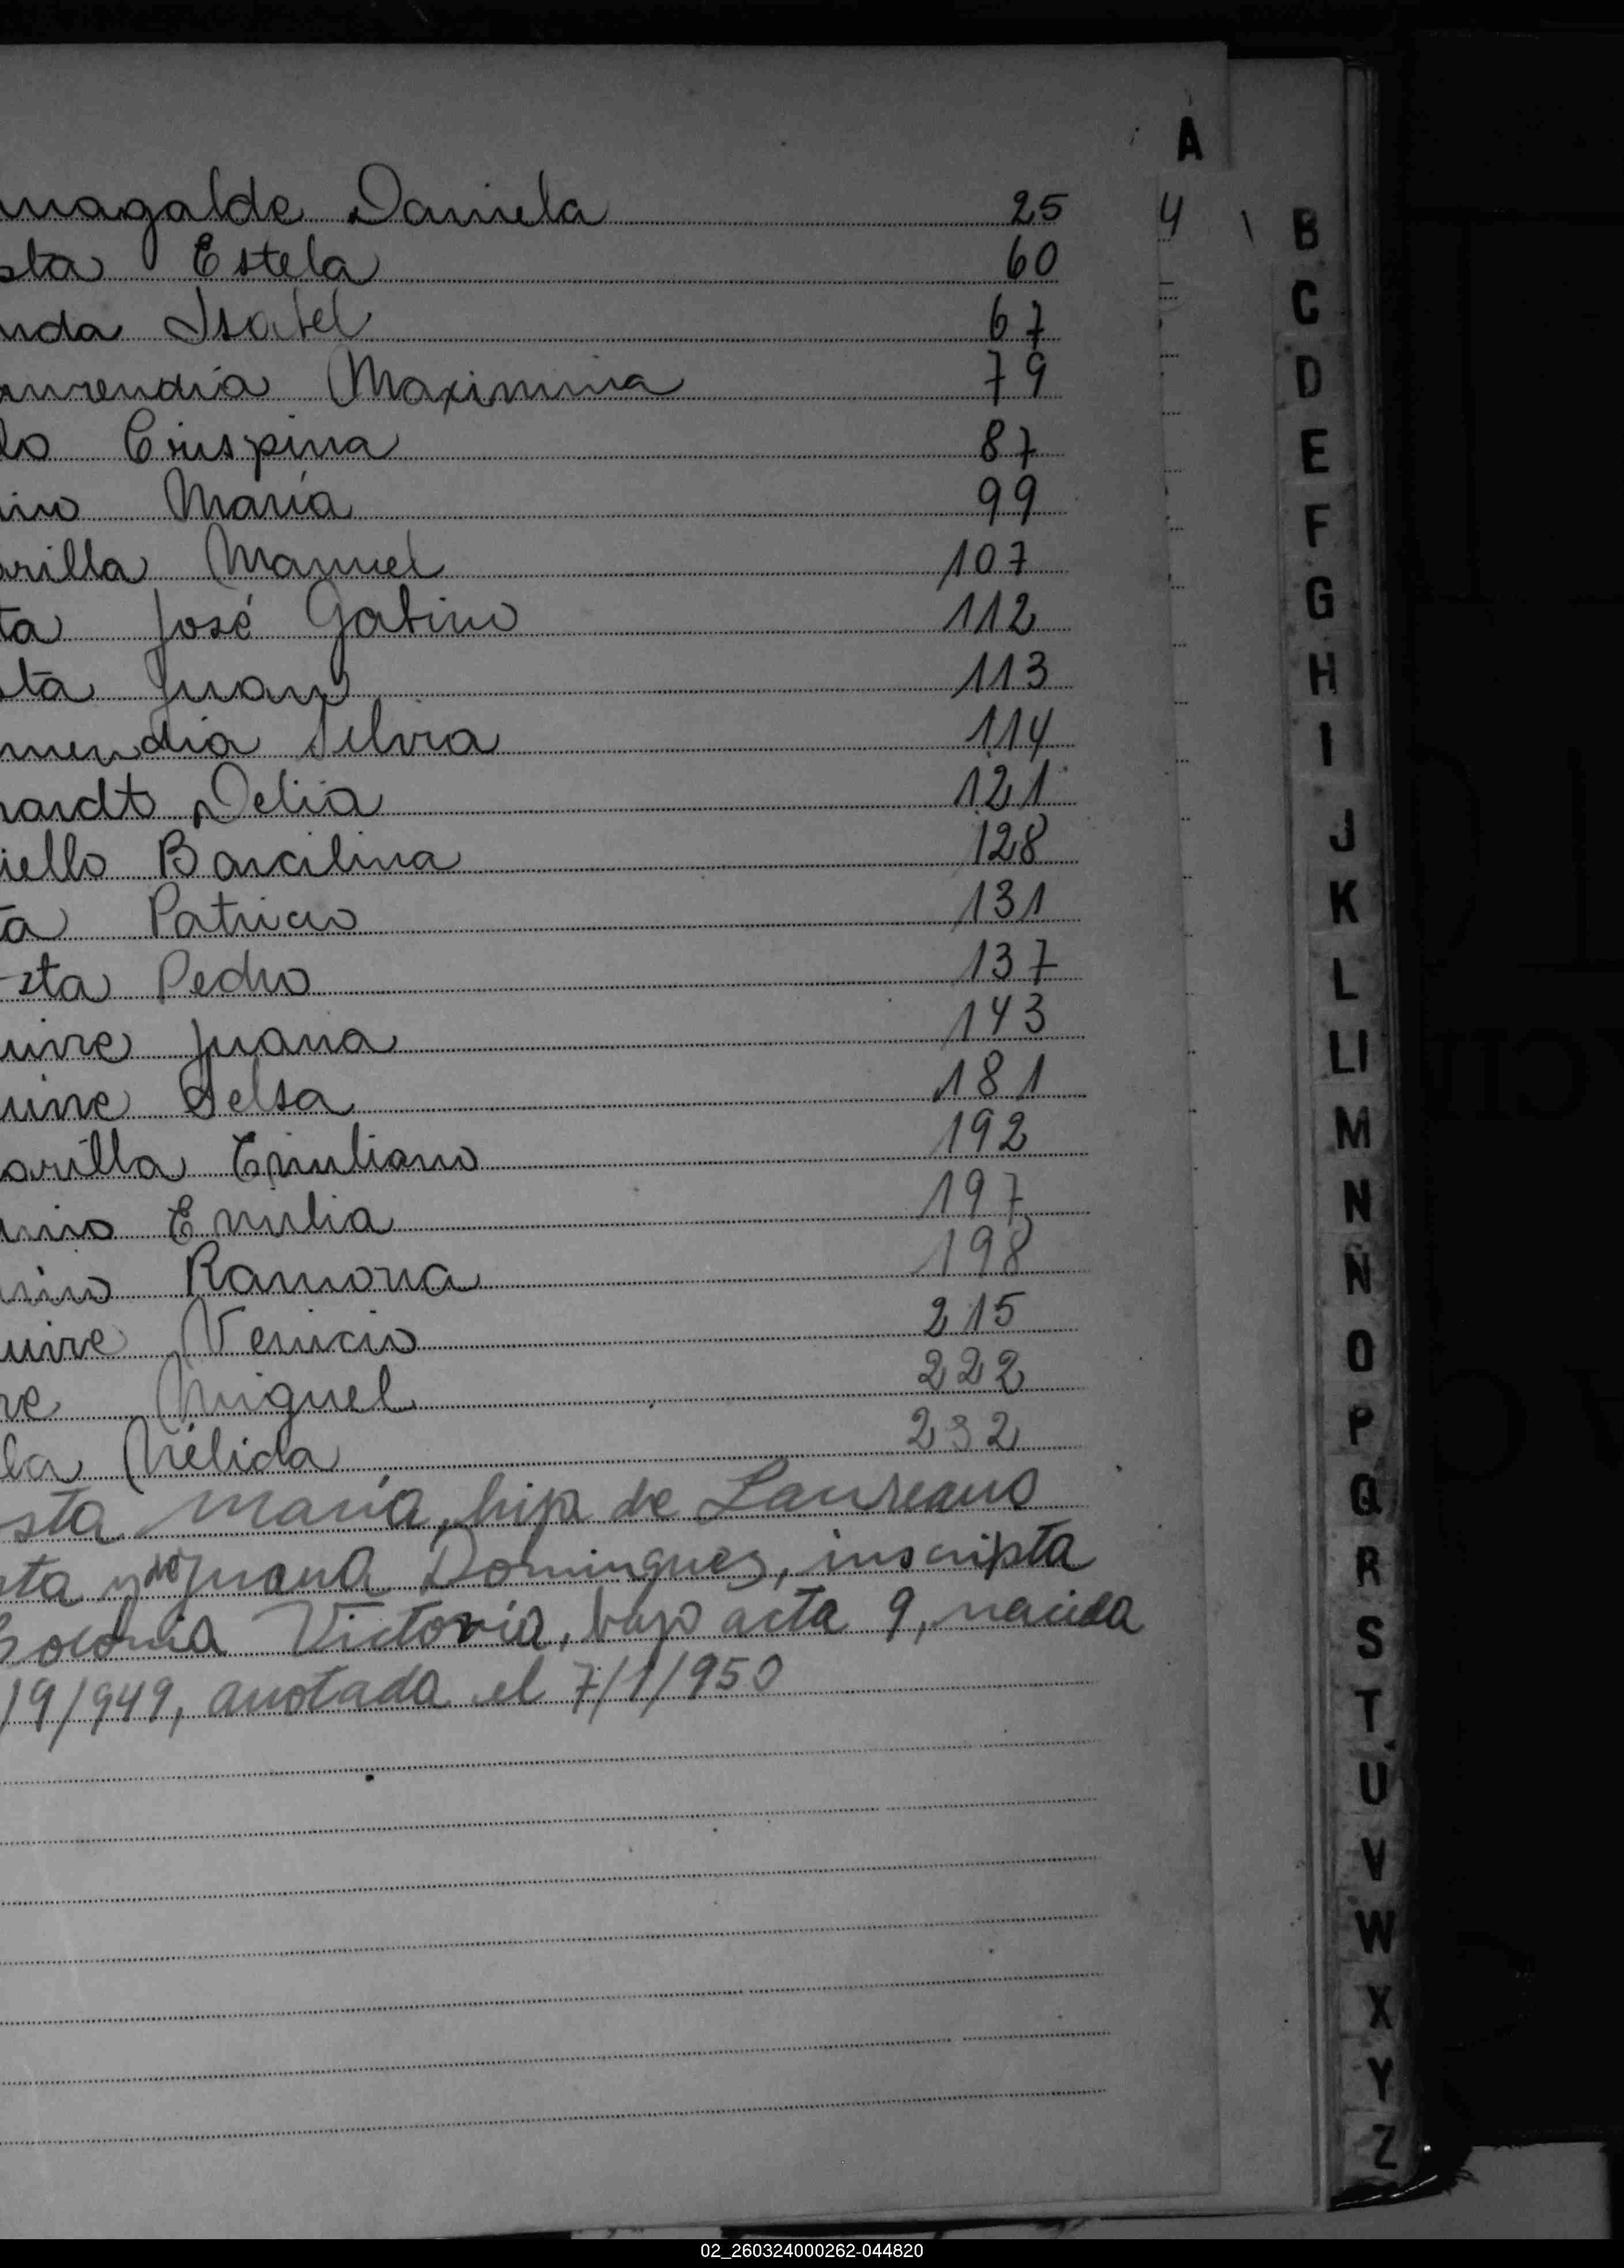 A
magalde Daniela 25
sta Estela 60
nda Isabel 67
anrendia Maximina 79
lo Crispina 87
ino María 99
arilla Manuel 107
ta José Gabino 112
sta Juan 113
mendia Silvia 114
hardt Delia 121
iello Barcilina 128
ta Patricio 131
sta Pedro 137
uirre Juana 143
uirre Selsa 181
arilla Emiliano 192
nino Emilia 197
nino Ramona 198
uirre Venicio 215
re Miguel 222
la Nélida 232
sta María, hija de Laureano
sta y de Juana Dominguez, inscripta
Colonia Victoria, bajo acta 9, nacida
/9/949, anotada el 7/1/950
4
B
C
D
E
F
G
H
I
J
K
L
Ll
M
N
Ñ
O
P
Q
R
S
T
U
V
W
X
Y
Z
02_260324000262-044820